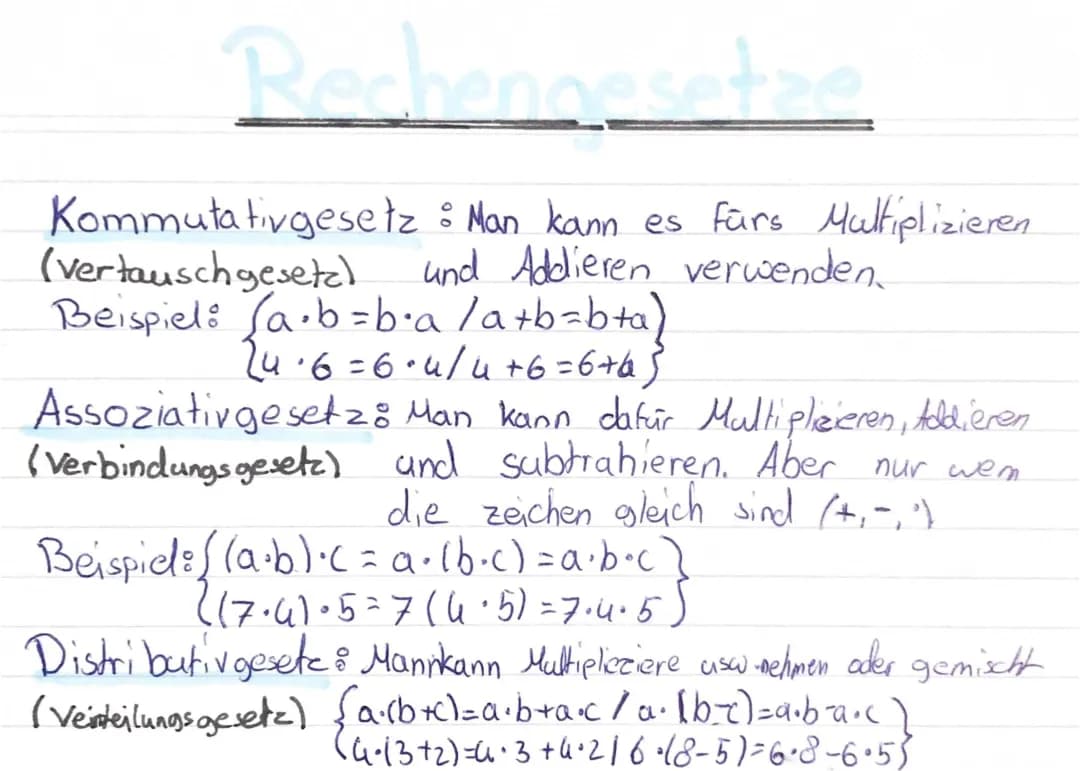 Rechengesetze
Kommutativgesetz: Man kann es fürs Multiplizieren
(Vertauschgesetz) und Addieren verwenden.
Beispiel: {a·b=b·a / a+b=b+a}
{4·6=6·4 / 4+6=6+4}
Assoziativgesetz: Man kann dafür Multiplizieren, Addieren
(Verbindungsgesetz) und subtrahieren. Aber nur wenn
die zeichen gleich sind (+,-,·)
Beispiel: {(a·b)·c = a·(b·c) = a·b·c}
{(7·4)·5 = 7(4·5) = 7·4·5}
Distributivgesetz: Mannkann Multipliziere usw nehmen oder gemischt
(Verteilungsgesetz) {a·(b+c)=a·b+a·c / a·(b-c)=a·b-a·c}
{4·(3+2)=4·3+4·2 / 6·(8-5)=6·8-6·5}